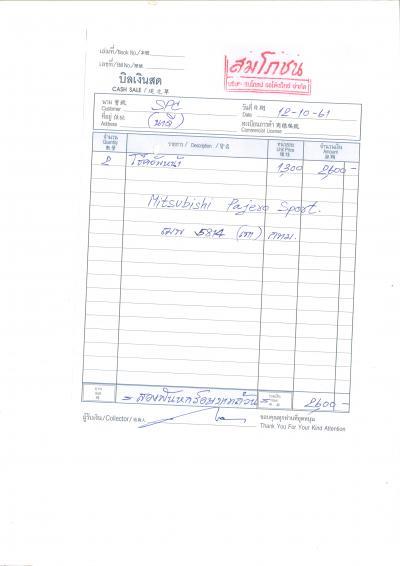 เล่มที่/Book No./本號
เลขที่/Bill No./號碼
สมโภชน์
บิลเงินสด
CASH SALE / 現沽單
นาม 寶號 Customer SPC วันที่ 日期 Date 12-10-61
ที่อยู่ 住址 Address (นาลี) ทะเบียนการค้า 商標編號 Commercial License
จำนวน Quantity 數量 รายการ / Description / 貨名 หน่วยละ Unit Price จำนวนเงิน Amount
2 โช๊คอัพหน้า 1,300 2,600 -
Mitsubishi Pajero Sport.
5814 กทม.
= สองพันหกร้อยบาทถ้วน = 2,600 -
ผู้รับเงิน/Collector/收銀人 ขอบคุณทุกท่านที่อุดหนุน
Thank You For Your Kind Attention